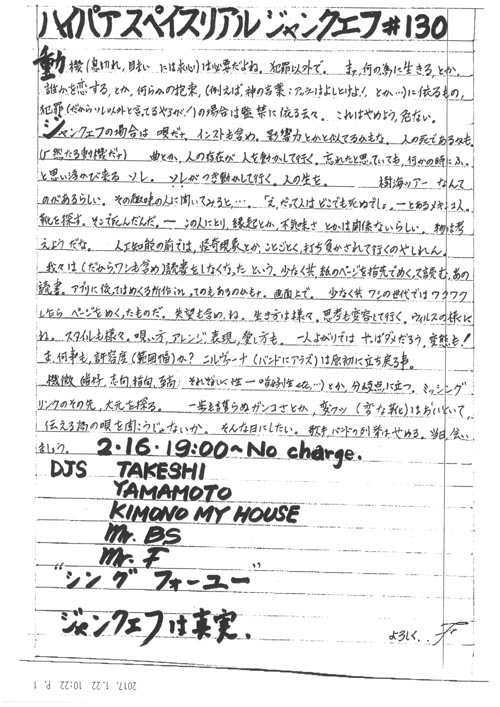 ハイパアスペイスリアルジャンクエフ#130
動機(息切れ、目まい には求心)は必要だよね。犯罪以外で。 まァ、何の為に生きる、とか、
誰かを恋する、とか、何らかの拘束、(例えば 神の言葉:アッラーはよしとけよ!、とか…)に依るもの、
犯罪(だからソレ以外と言ってるやろが!)の場合は監禁に依る云々。 これはやめよう、危ない。
ジャンクエフの場合は 唄だァ。インストも含め。影響力とかと似てるかもな。人の死であるかも
(厂然たる動機だァ) 曲とか、人の存在が 人を動かして行く。忘れたと思っていても、何かの時にふっ
と思い浮かび来る ソレ。 ソレがつき動かして行く。人の生を。 樹海ツアー なんて
のがあるらしい。その趣味の人に聞いてみると…。「え、だって人は どこでも死ぬでしょ。ーとあるメキシコ人、
靴を探す。そこで死んだんだ。ー この人にとり、縁起とか、不気味さ とかは関係ないらしい。物は考
えようだな。 人工知能の前では、怪奇現象とか、ことごとく、打ち負かされて行くのやしれん。
我々は(だからワシも含め)読書をしなくなった という。少なく共、紙のページを指先でめくって読む、あの
読書。アプリに依ってはめくる所作in、ってのもあるのかもナ。画面上で。 少なく共 ワシの世代では ワクワク
しながら ページをめくったものだ。失望も含め、ね。生き方は様々。思考も変容して行く。ウィルスの様に
ね。 スタイルも様々。唄い方、アレンジ、表現、愛し方も。 一人よがりでは やっぱダメだろう、変態も!
ま、何事も、許容度(範囲値)か? ニルヴァーナ(バンドにアラズ)は原初に立ち戻る事。
機微(嗜好、志向、指向、
とか、分岐点に立つ。ミッシング
リンクのその先、大元を探る。 一歩も譲らぬガンコさとか、
(変な靴)はおいといて、
伝える為の唄を聞こうじゃないか。そんな日にしたい。歌手、バンドの列挙はやめる。当日、会い
ましょう。 2・16・19:00〜No charge.
DJS TAKESHI
YAMAMOTO
KIMONO MY HOUSE
Mr. BS
Mr. F
“シング フォーユー”
ジャンクエフは真実。
よろしく.. F
2017. 1.22 10:22 P. 1